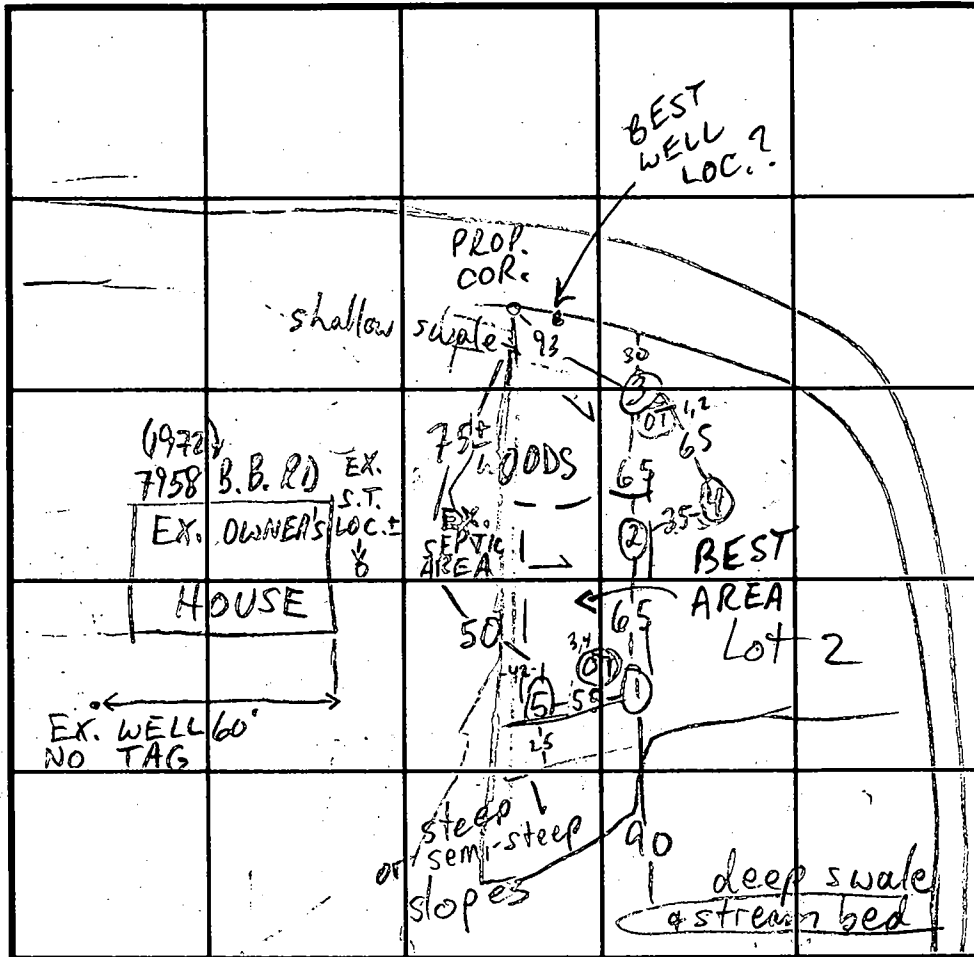 BEST
WELL
LOC.?
PROP.
COR.
shallow swale
93
30
3
OT 1,2
65
(1972)
7958 B.B. RD
EX.
S.T.
LOC.±
75±
WOODS
65
4
35
2
EX. OWNER'S
HOUSE
EX.
SEPTIC
AREA
BEST
AREA
Lot 2
65
50
3,4
OT
42
5
55
1
25
EX. WELL 60'
NO TAG
steep
or semi-steep
slopes
90
deep swale
& stream bed